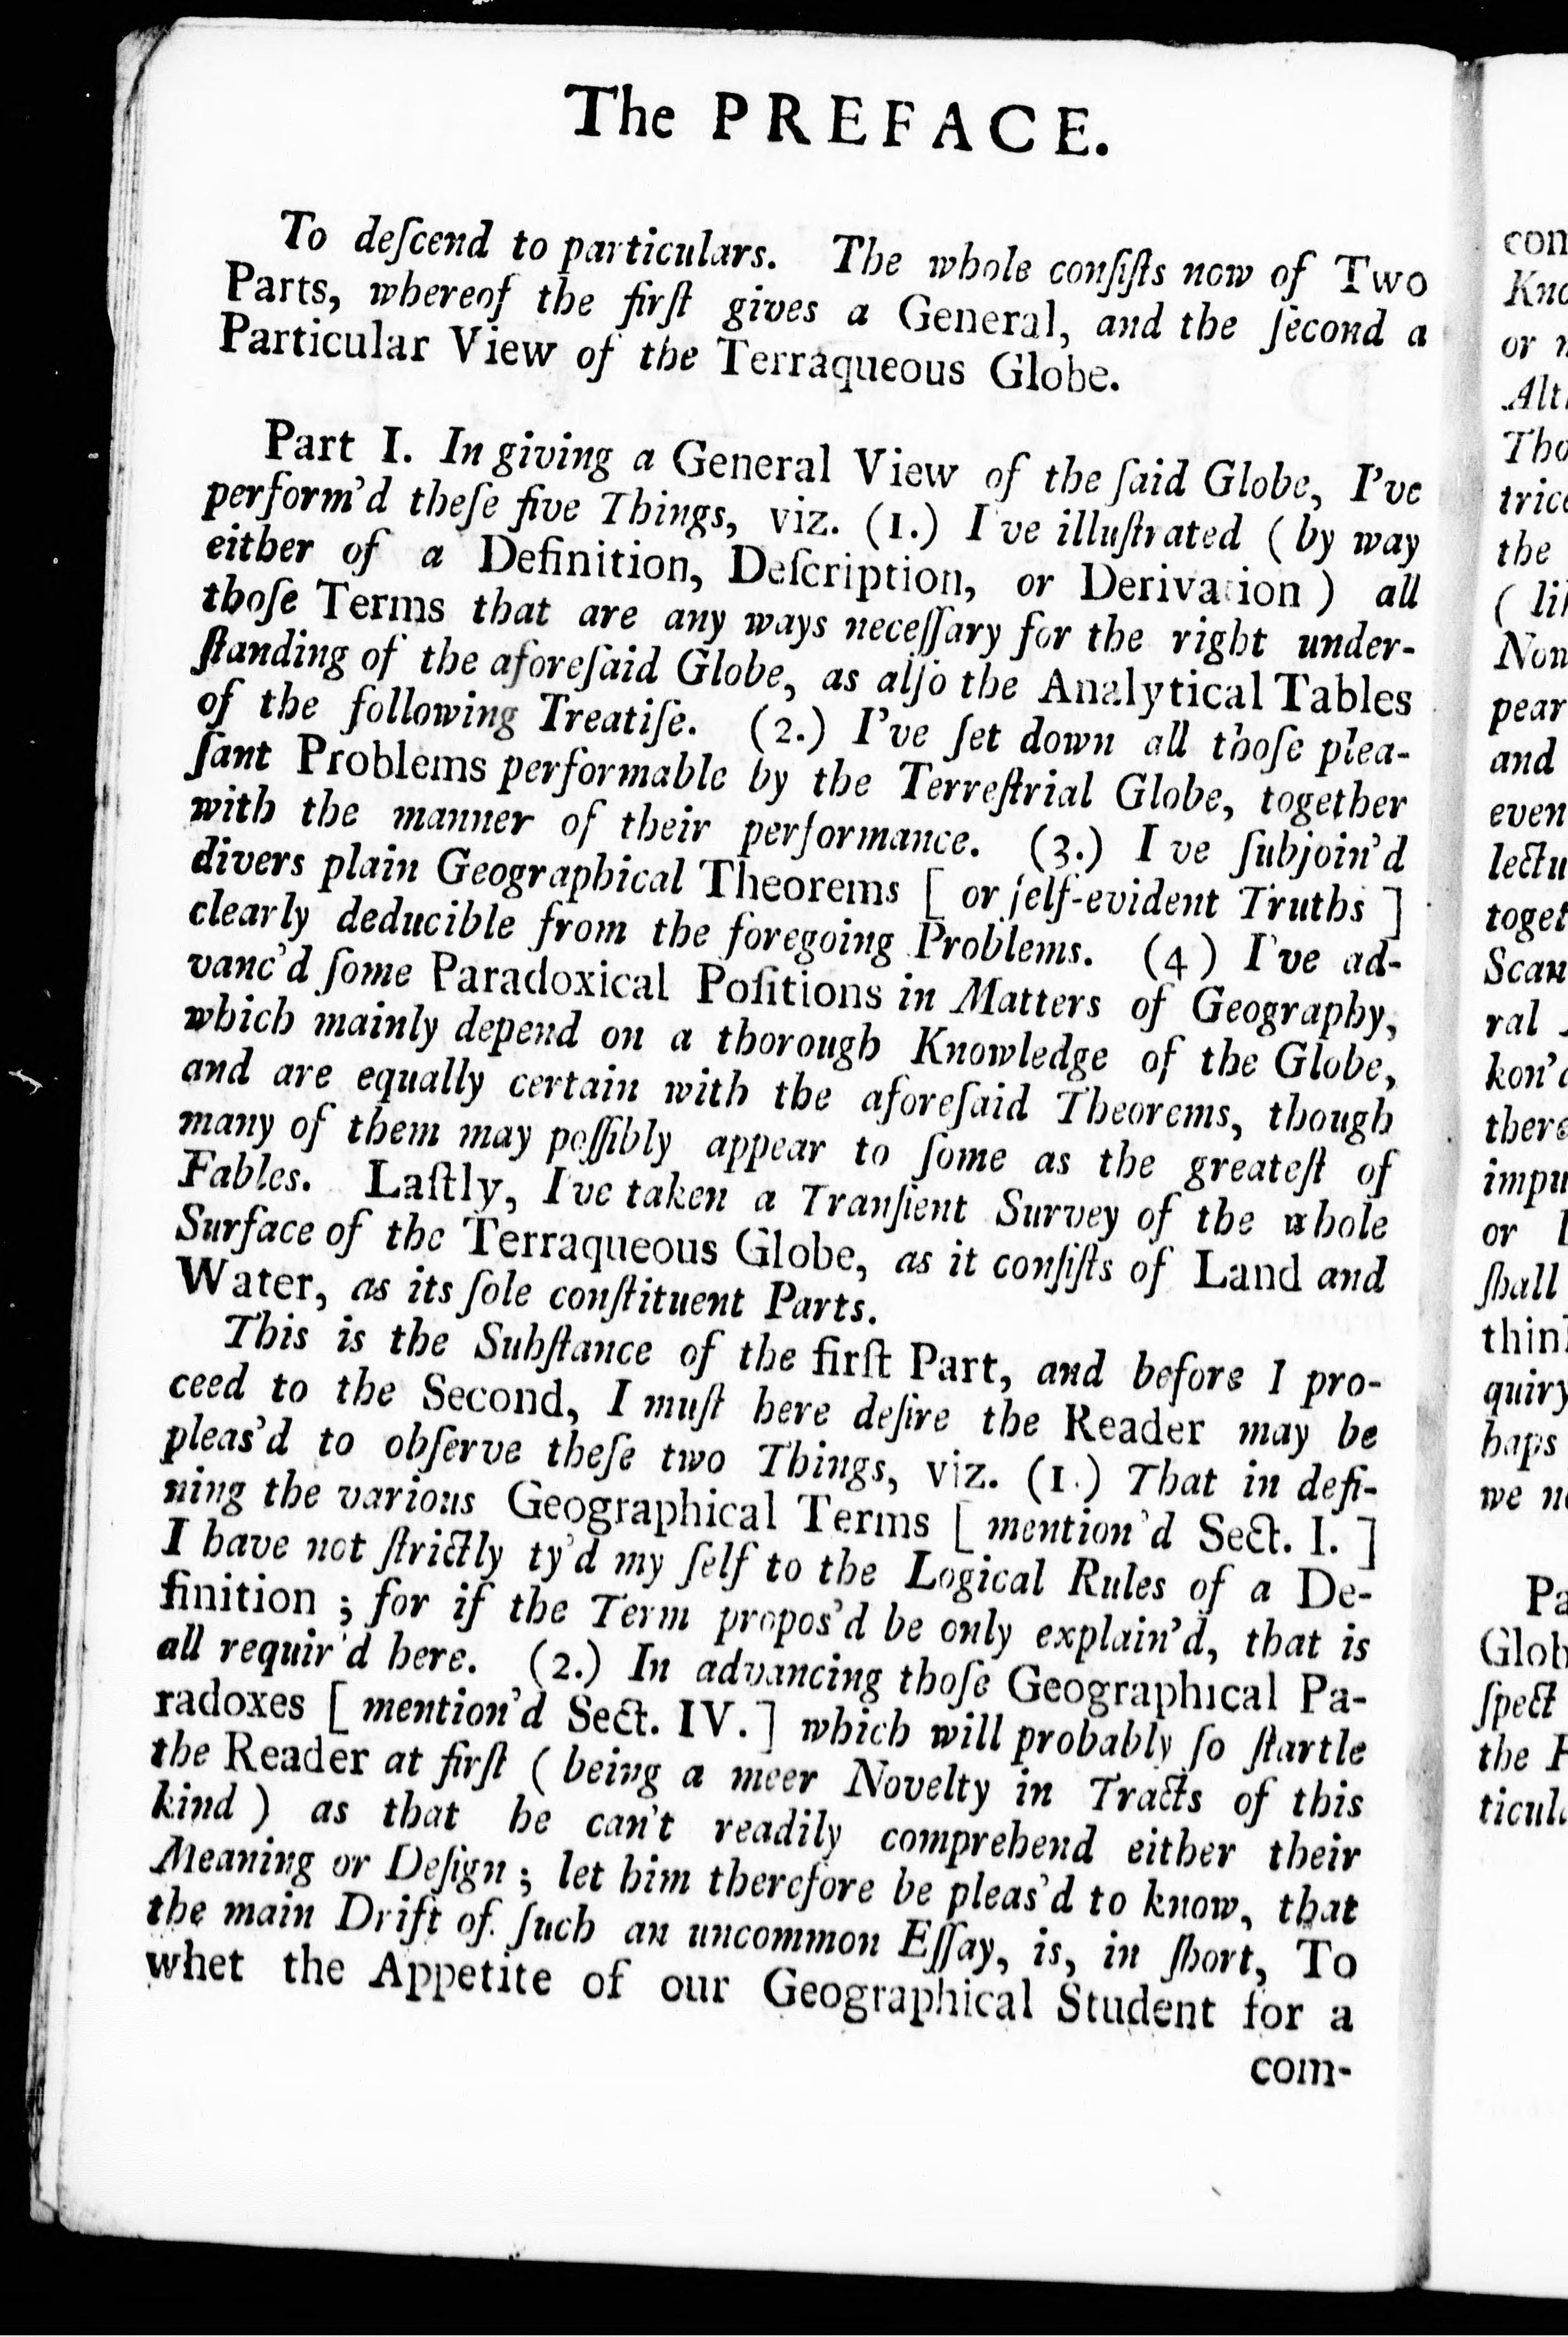 The PREFACE.
To deſcend to particulars. The whole conſiſts now of Two
Parts, whereof the firſt gives a General, and the ſecond a
Particular View of the Terraqueous Globe.
Part I. In giving a General View of the ſaid Globe, I've
perform'd theſe five Things, viz. (1.) I've illuſtrated ( by way
either of a Definition, Deſcription, or Derivation ) all
thoſe Terms that are any ways neceſſary for the right under-
ſtanding of the aforeſaid Globe, as alſo the Analytical Tables
of the following Treatiſe. (2.) I've ſet down all thoſe plea-
ſant Problems performable by the Terreſtrial Globe, together
with the manner of their performance. (3.) I've ſubjoin'd
divers plain Geographical Theorems [ or ſelf-evident Truths ]
clearly deducible from the foregoing Problems. (4) I've ad-
vanc'd ſome Paradoxical Poſitions in Matters of Geography,
which mainly depend on a thorough Knowledge of the Globe,
and are equally certain with the aforeſaid Theorems, though
many of them may poſſibly appear to ſome as the greateſt of
Fables. Laſtly, I've taken a Tranſient Survey of the whole
Surface of the Terraqueous Globe, as it conſiſts of Land and
Water, as its ſole conſtituent Parts.
This is the Subſtance of the firſt Part, and before I pro-
ceed to the Second, I muſt here deſire the Reader may be
pleas'd to obſerve theſe two Things, viz. (1.) That in defi-
ning the various Geographical Terms [ mention'd Sect. I. ]
I have not ſtrictly ty'd my ſelf to the Logical Rules of a De-
finition ; for if the Term propos'd be only explain'd, that is
all requir'd here. (2.) In advancing thoſe Geographical Pa-
radoxes [ mention'd Sect. IV. ] which will probably ſo ſtartle
the Reader at firſt ( being a meer Novelty in Tracts of this
kind ) as that he can't readily comprehend either their
Meaning or Deſign ; let him therefore be pleas'd to know, that
the main Drift of ſuch an uncommon Eſſay, is, in ſhort, To
whet the Appetite of our Geographical Student for a
com-
con
Kno
or
Alt
Tho
tric
the
( li
Non
pear
and
even
lectu
toget
Scan
ral
kon'd
there
impu
or
ſhall
thin
quiry
haps
we n
Pa
Glob
ſpect
the
ticul